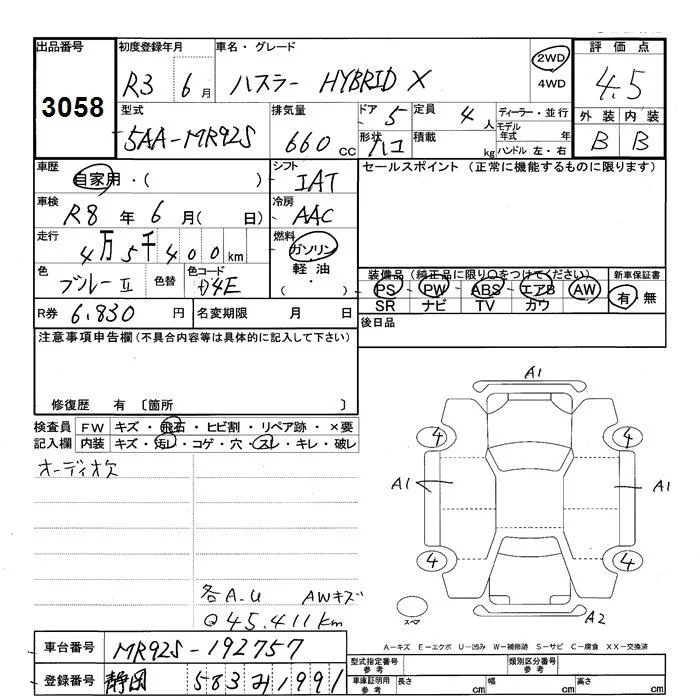 出品番号 3058
初度登録年月 R3 6月
車名・グレード ハスラー HYBRID X
2WD
4WD
評価点 4.5
外装 内装
B B
型式 5AA-MR92S
排気量 660 cc
ドア 5 定員 4人
形状 ハコ 積載 kg
ディーラー・並行
モデル年式 年
ハンドル 左・右
車歴 自家用・( )
シフト IAT
セールスポイント (正常に機能するものに限ります)
車検 R8年 6月( 日)
冷房 AAC
走行 4万5千400km
燃料 ガソリン
軽油
( ・ )
色 ブルーⅡ 色替 色コード
装備品 (純正品に限り○をつけてください)
新車保証書
PS・PW・ABS・エアB AW
SR ナビ TV カワ
有・無
R券 6.830 円 名変期限 月 日
後日品
注意事項申告欄 (不具合内容等は具体的に記入して下さい)
修復歴 有 〔箇所 〕
検査員 FW キズ・飛石・ヒビ割・リペア跡・×要
記入欄 内装 キズ・汚レ・コゲ・穴・スレ・キレ・破レ
オーディオ欠
A1
4 4
A1 A1
4 4
スペア
A2
各A.U AWキズ
Q45.411km
A-キズ E-エクボ U-凹み W-補修跡 S-サビ C-腐食 XX-交換済
車台番号 MR92S-192757
登録番号 静岡 583 み 1991
型式指定番号 参考
類別区分番号 参考
車庫証明用 参考 長さ cm 幅 cm 高さ cm